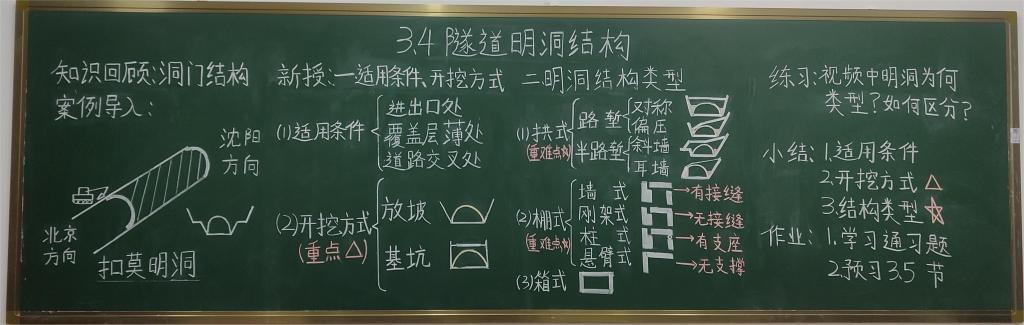 3.4 隧道明洞结构
知识回顾:洞门结构
案例导入:
沈阳
方向
北京
方向
扣莫明洞
新授:一适用条件、开挖方式
(1)适用条件
进出口处
覆盖层薄处
道路交叉处
(2)开挖方式
(重点△)
放坡
基坑
二明洞结构类型
(1)拱式
(重难点☆)
路堑
对称
偏压
半路堑
斜墙
耳墙
(2)棚式
(重难点☆)
墙式
刚架式
柱式
悬臂式
→有接缝
→无接缝
→有支座
→无支撑
(3)箱式
练习:视频中明洞为何
类型?如何区分?
小结:1.适用条件
2.开挖方式△
3.结构类型☆
作业:1.学习通习题
2.预习3.5节